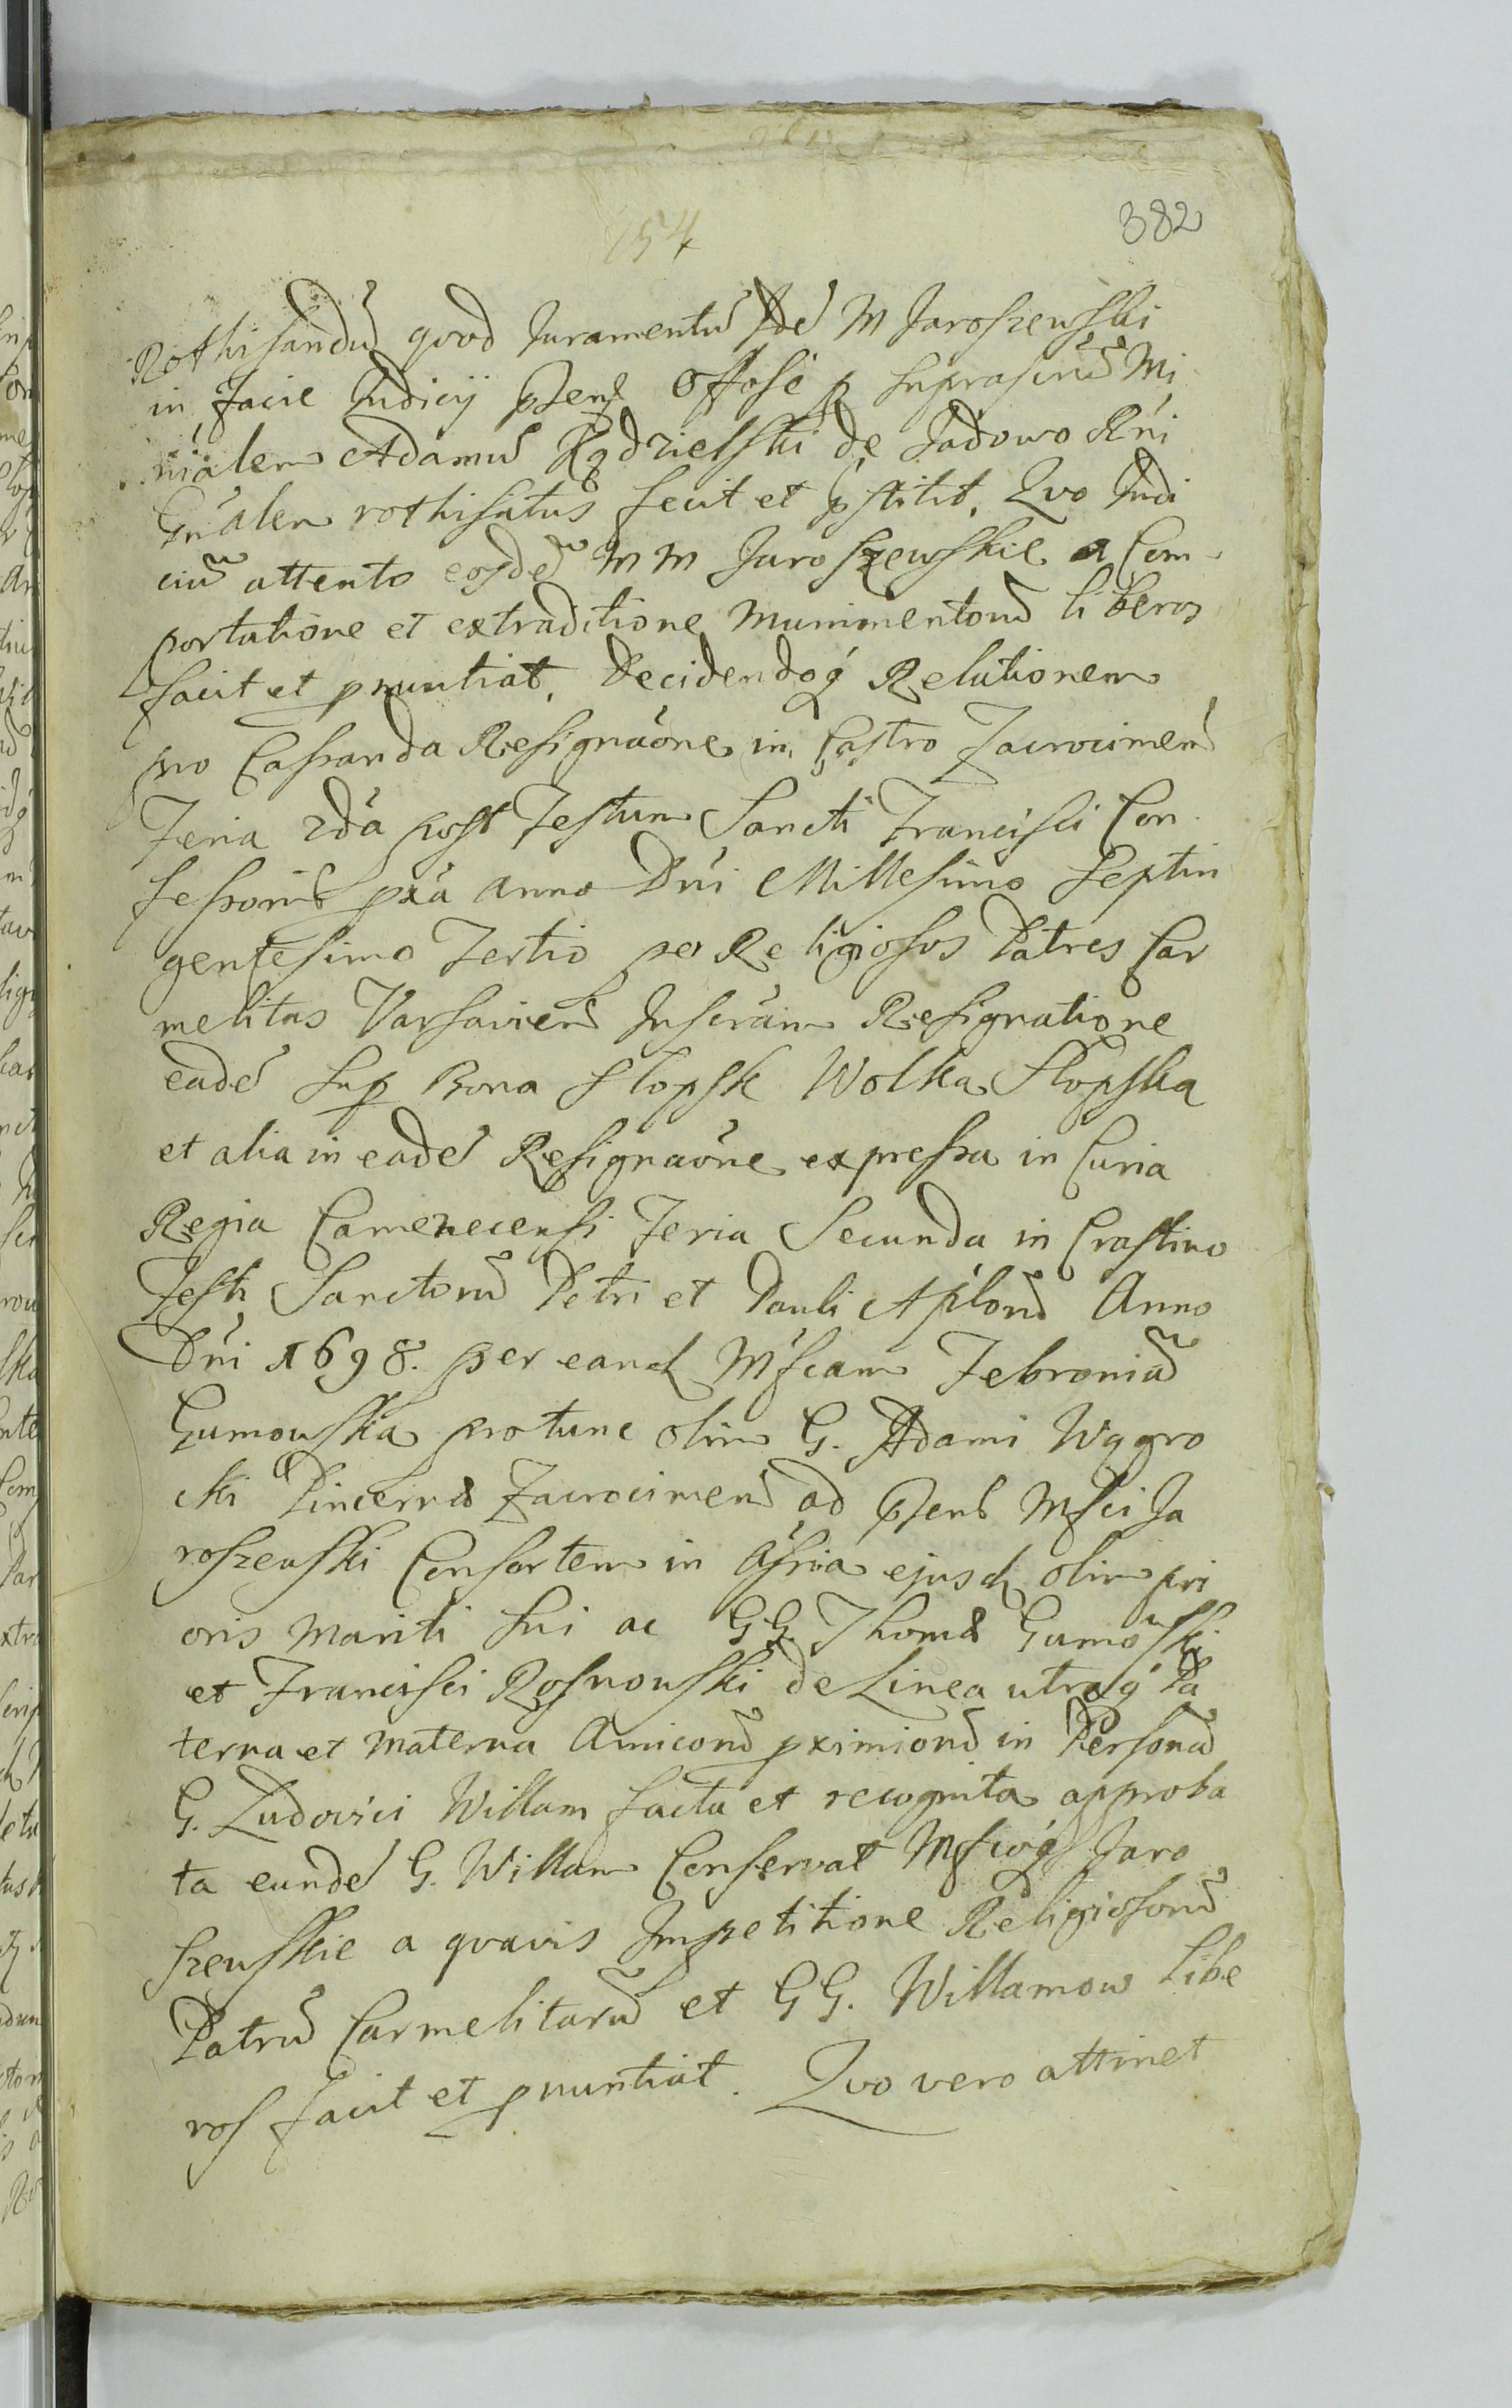 382
154
Rothisandũ quod Juramentũ Idẽ M Jaroszewski
in facie Judicij pŕsens Offose p suprascrũ Mi
niálem Adamũ Kądzielski de Jadowo Rńi
Gńalem rothisatus fecit et p̃stitit. Quo Iudi
ciũ attento eosdẽ M M Jaroszewskie a Com
portatione et extraditione munimentorũ liberos
facit et pnuntiat. Decidendoq́ Relationem
pro Cassanda Resignãone in Castro Zacrocimeñ
Feria 2dá post Festum Sancti Francisci Con
fessoris pxá anno Dńi Millesimo Septin
gentesimo Tertio per Religiosos Patres Car
melitas Varsavieñ Inscrám Resignatione
eadẽ sup Bona Slopsk Wolka Slopska
et alia in eadẽ Resignãone expressa in Curia
Regia Camenecensi Feria Secunda in Crastino
Festi Sanctorũ Petri et Pauli Aplorũ Anno
Dńi 1698. per eand Mfcam Febroniã
Gumowska protunc olim G. Adami Wągro
cki Pincernæ Zacrocimeñ ad pŕsens Mfci Ja
roszewski Consortem in Assńa ejusd olim pri
oris Mariti sui ac GG. Thomæ Gumowski
et Francisci Rosnowski de Linea utraq́ Pa
terna et Materna Amicorũ pximiorũ in Personã
G. Ludovici Willam facta et recognita approba
ta eundẽ G. Willam Conservat Mfcosq́ Jaro
szewskie a quavis Impetitione Religiosorũ
Patrũ Carmelitarũ et GG. Willamow libe
ros facit et pnuntiat. Quo vero attinet